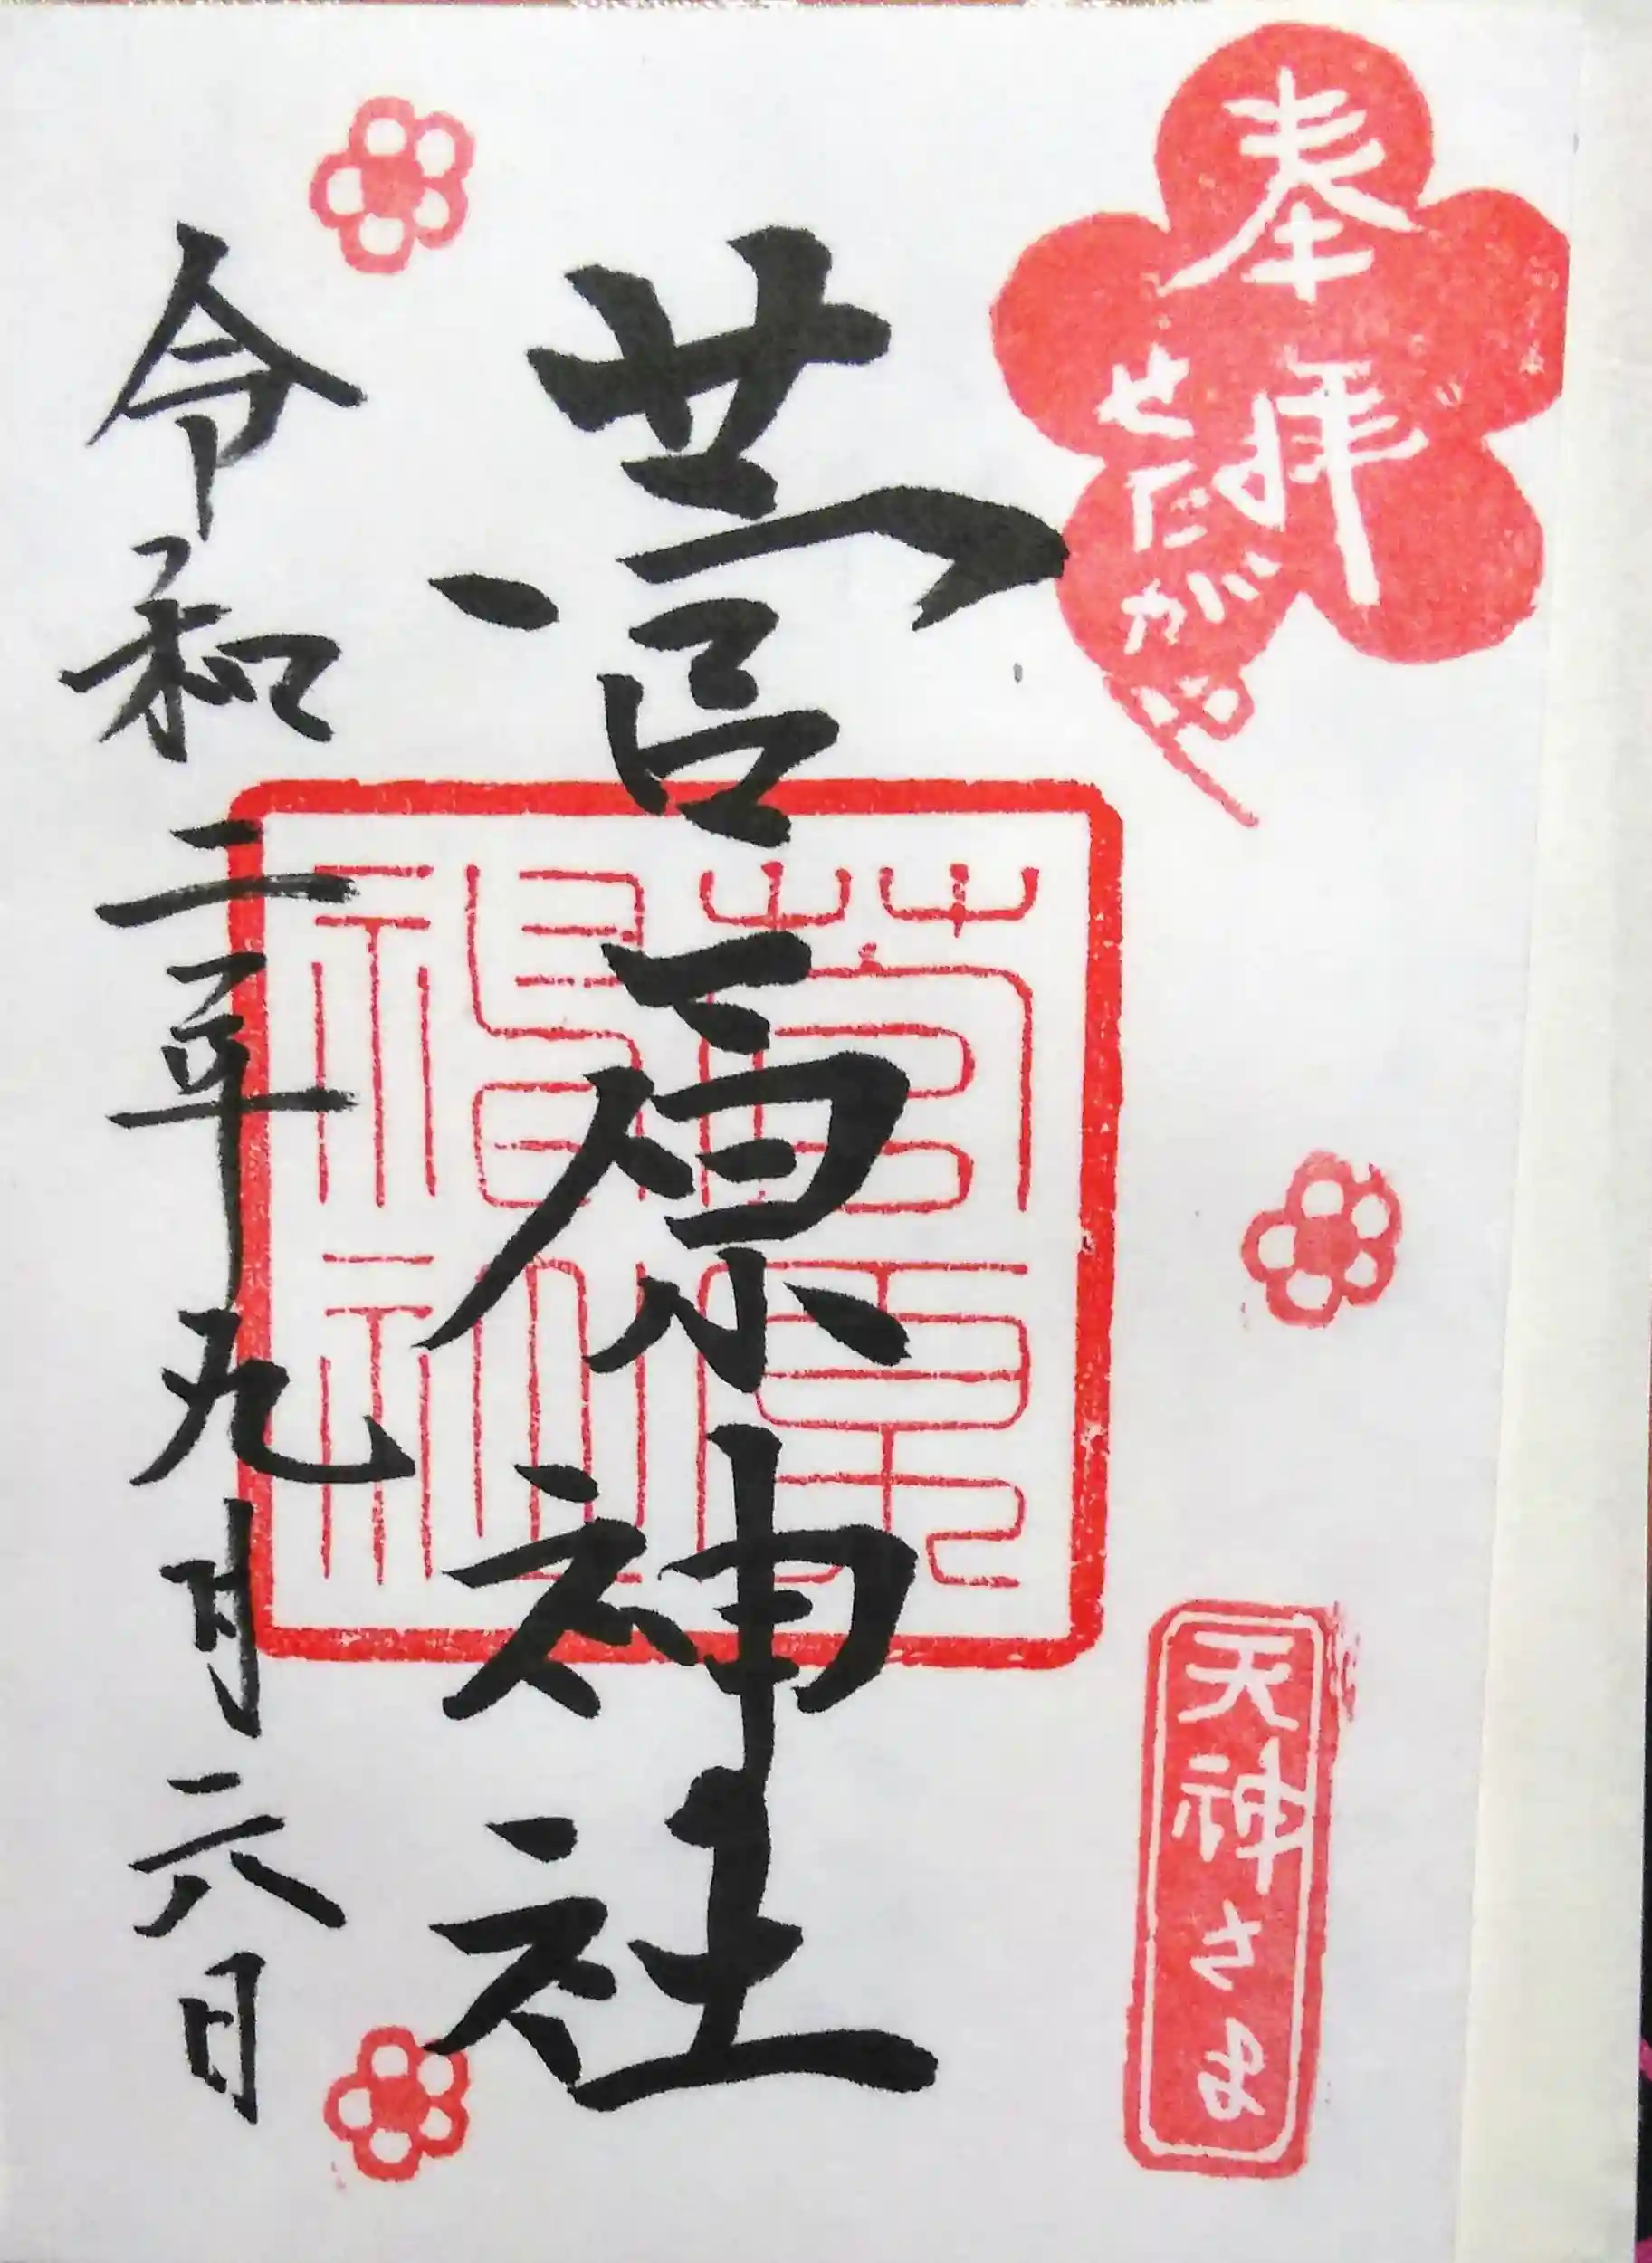 奉拝
せたがや
天神さま
菅原神社
菅原
神社
令和二年九月六日